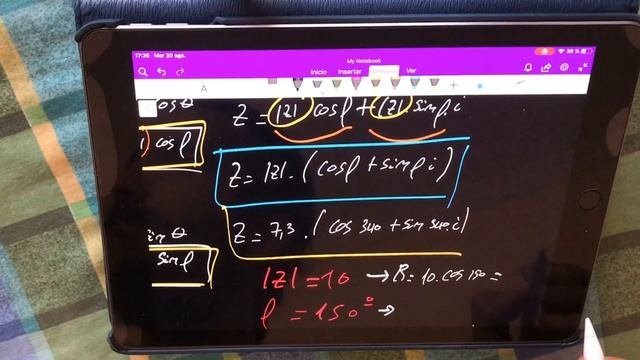 17:26 Mar 20 ago.
39 %
My Notebook
Inicio Insertar Dibujar Ver
A
cos θ
Z = |z| cosρ + |z| sinρ.i
cosρ
Z = |z|.(cosρ + sinρ i)
sin θ
Z = 7,3.(cos 340 + sin 340.i)
sinρ
|z| = 10 → R = 10.cos 150 =
ρ = 150° →